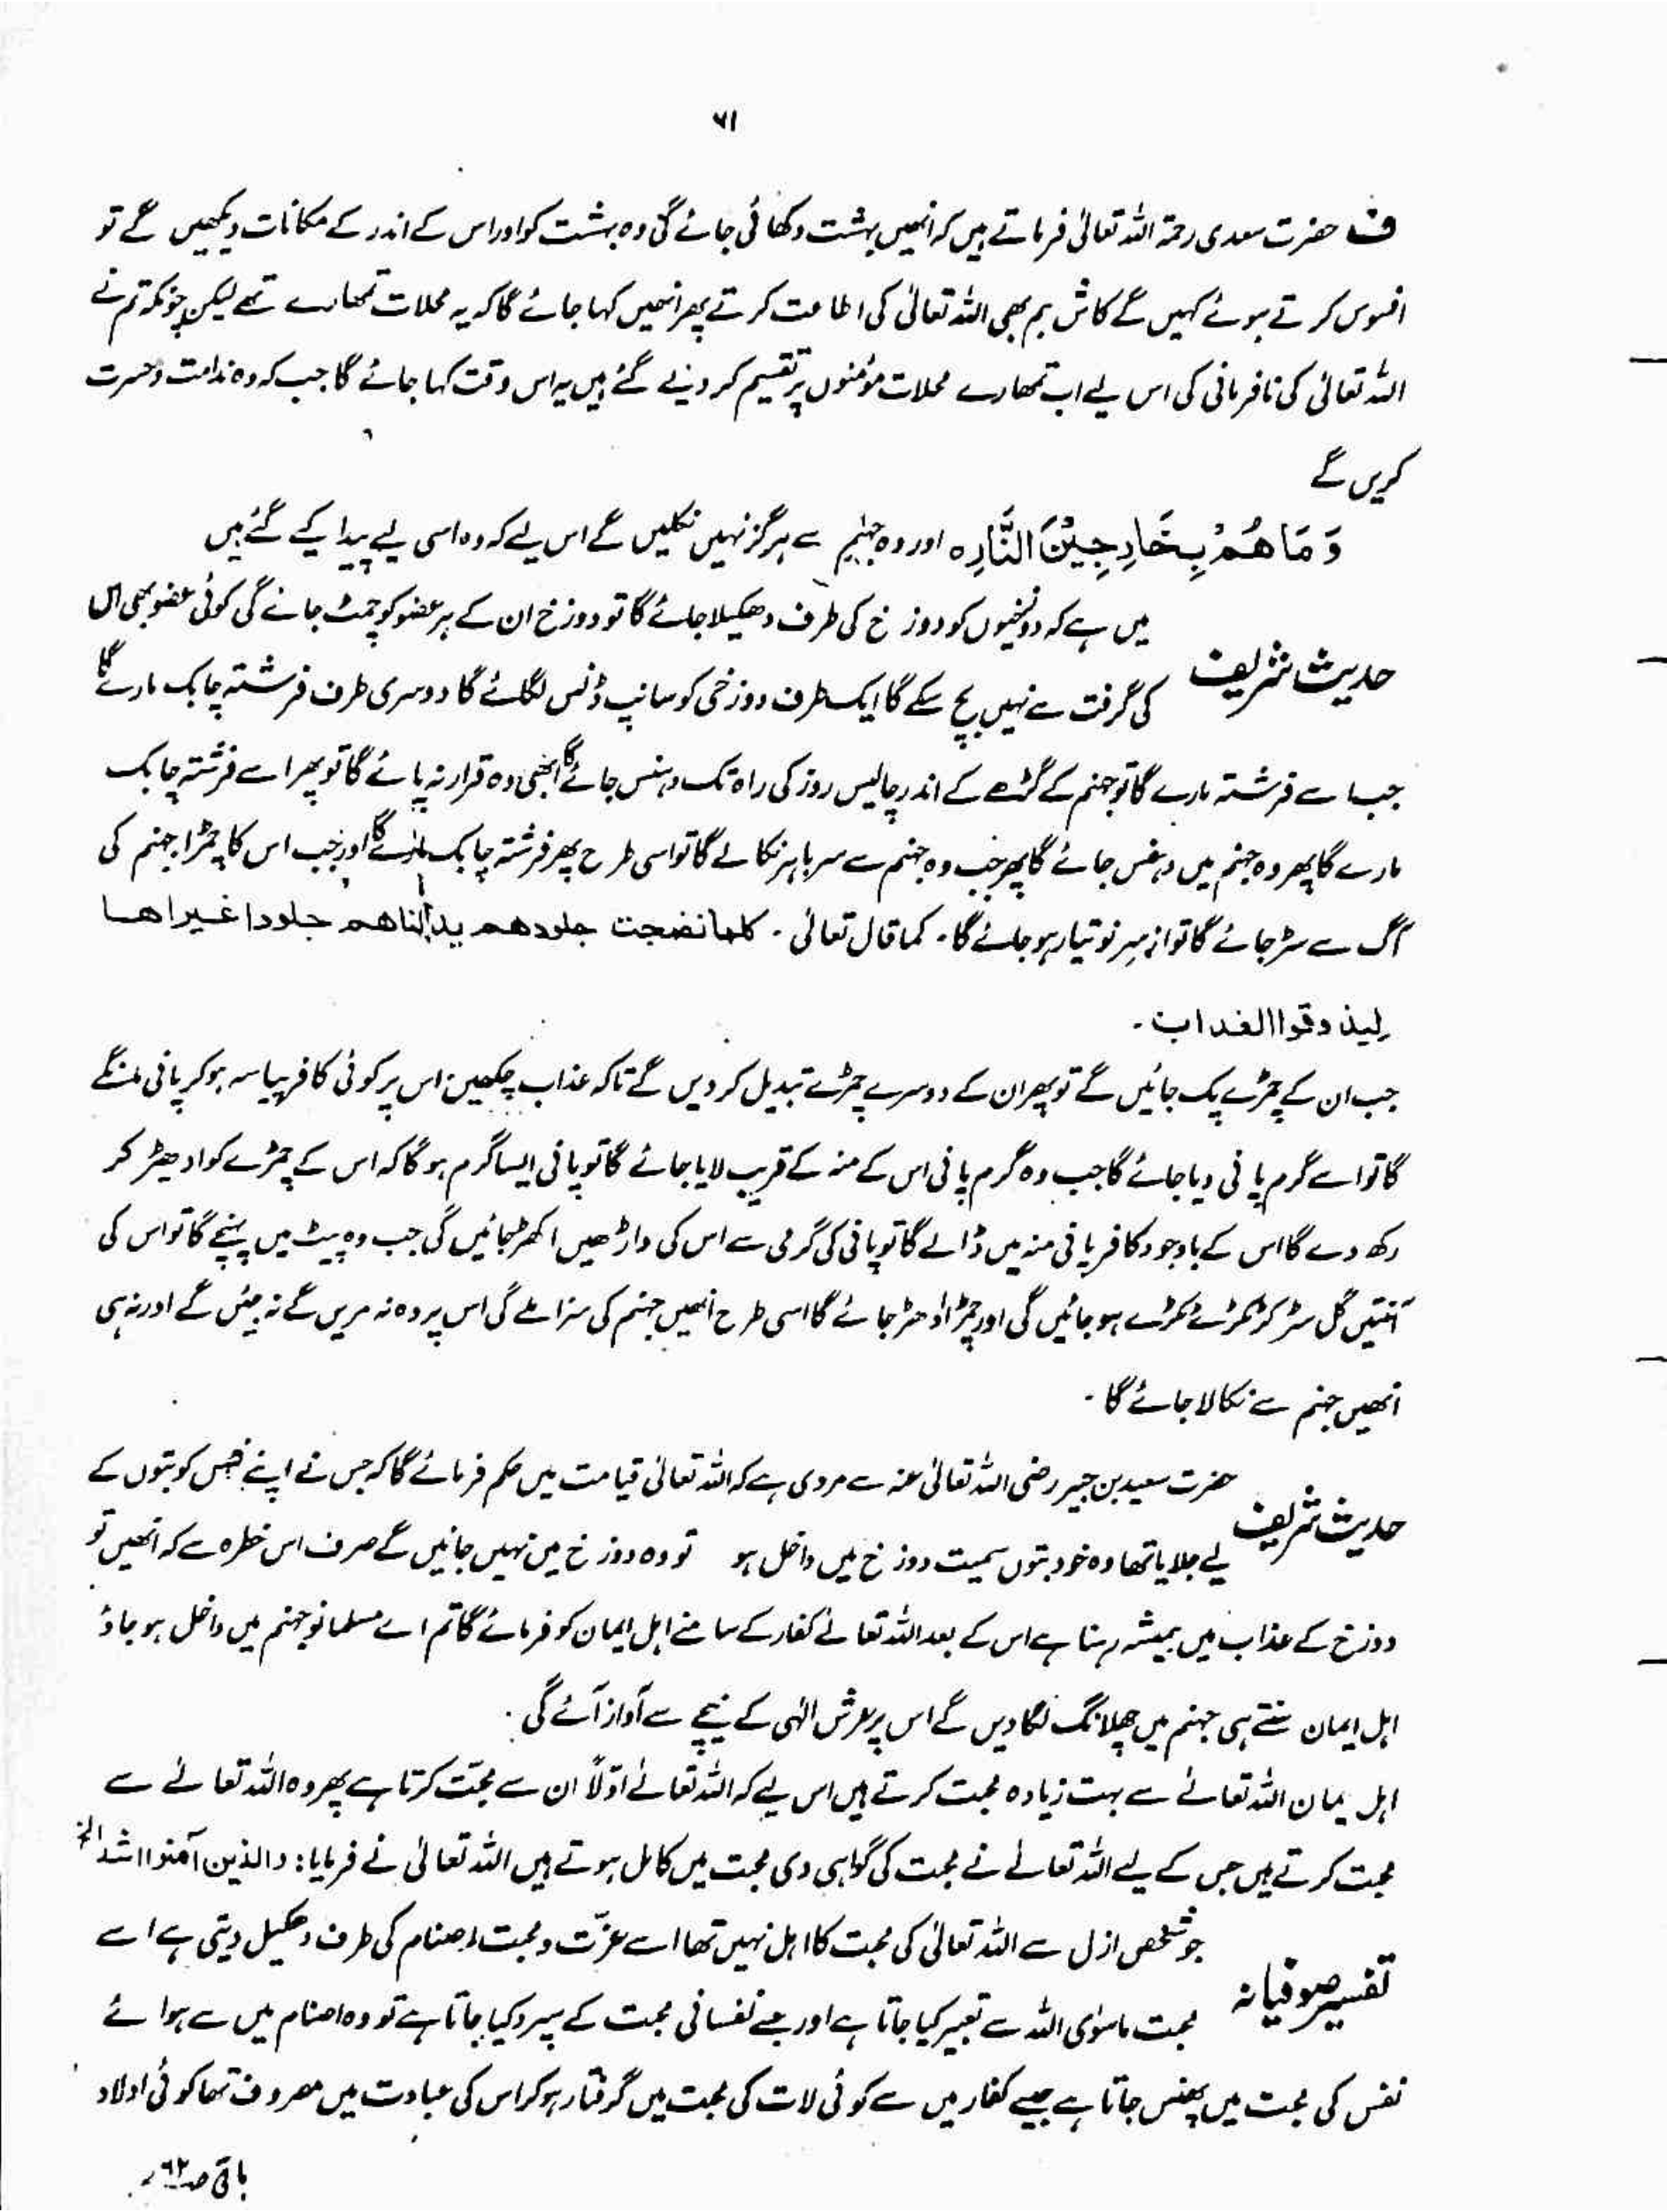 ۶۱
ف حضرت سعدی رحمۃ اللہ تعالیٰ فرماتے ہیں کہ انھیں بہشت دکھائی جائے گی وہ بہشت کو اور اس کے اندر کے مکانات دیکھیں گے تو
افسوس کرتے ہوئے کہیں گے کاش ہم بھی اللہ تعالیٰ کی اطاعت کرتے پھر انھیں کہا جائے گا کہ یہ محلات تمھارے تھے لیکن چونکہ تم نے
اللہ تعالیٰ کی نافرمانی کی اس لیے اب تمھارے محلات مؤمنوں پر تقسیم کر دیئے گئے ہیں یہ اس وقت کہا جائے گا جب کہ وہ ندامت و حسرت
کریں گے
وَمَا هُمْ بِخَارِجِيْنَ النَّارِ ہ اور وہ جہنم سے ہرگز نہیں نکلیں گے اس لیے کہ وہ اسی لیے پیدا کیے گئے ہیں
میں ہے کہ دوزخیوں کو دوزخ کی طرف دھکیلا جائے گا تو دوزخ ان کے ہر عضو کو چمٹ جائے گی کوئی عضو بھی اس
حدیث شریف
کی گرفت سے نہیں بچ سکے گا ایک طرف دوزخی کو سانپ ڈنس لگائے گا دوسری طرف فرشتہ چابک مارے گا
جب اسے فرشتہ مارے گا تو جہنم کے گڑھے کے اندر چالیس روز کی راہ تک دہنس جائے گا ابھی وہ قرار نہ پائے گا تو پھر اسے فرشتہ چابک
مارے گا پھر وہ جہنم میں دہنس جائے گا پھر جب وہ جہنم سے سر باہر نکالے گا تو اسی طرح پھر فرشتہ چابک مارے گا اور جب اس کا چمڑا جہنم کی
آگ سے سڑ جائے گا تو از سر نو تیار ہو جائے گا۔ کما قال تعالیٰ۔ کلما نضجت جلودهم بدلناهم جلودا غیراها
لیذوقوا العذاب۔
جب ان کے چمڑے پک جائیں گے تو پھر ان کے دوسرے چمڑے تبدیل کر دیں گے تاکہ عذاب چکھیں اس پر کوئی کافر پیاسہ ہو کر پانی مانگے
گا تو اسے گرم پانی دیا جائے گا جب وہ گرم پانی اس کے منہ کے قریب لایا جائے گا تو پانی ایسا گرم ہوگا کہ اس کے چمڑے کو ادھیڑ کر
رکھ دے گا اس کے باوجود کافر پانی منہ میں ڈالے گا تو پانی کی گرمی سے اس کی داڑھیں اکھڑ جائیں گی جب وہ پیٹ میں پہنچے گا تو اس کی
آنتیں گل سڑ کر ٹکڑے ٹکڑے ہو جائیں گی اور چمڑا ادھڑ جائے گا اسی طرح انھیں جہنم کی سزا ملے گی اس پر وہ نہ مریں گے نہ جیئں گے اور نہ ہی
انھیں جہنم سے نکالا جائے گا۔
حضرت سعید بن جبیر رضی اللہ تعالیٰ عنہ سے مروی ہے کہ اللہ تعالیٰ قیامت میں حکم فرمائے گا کہ جس نے اپنے نفس کو بتوں کے
حدیث شریف
لیے جلایا تھا وہ خود بتوں سمیت دوزخ میں داخل ہو تو وہ دوزخ میں نہیں جائیں گے صرف اس خطرہ سے کہ انھیں تو
دوزخ کے عذاب میں ہمیشہ رہنا ہے اس کے بعد اللہ تعالےٰ کفار کے سامنے اہل ایمان کو فرمائے گا تم اے مسلمانو جہنم میں داخل ہو جاؤ
اہل ایمان سنتے ہی جہنم میں چھلانگ لگا دیں گے اس پر عرش الٰہی کے نیچے سے آواز آئے گی۔
اہل یمان اللہ تعالےٰ سے بہت زیادہ محبت کرتے ہیں اس لیے کہ اللہ تعالےٰ اوّلاً ان سے محبّت کرتا ہے پھر وہ اللہ تعالےٰ سے
محبت کرتے ہیں جس کے لیے اللہ تعالےٰ نے محبت کی گواہی دی محبت میں کامل ہوتے ہیں اللہ تعالیٰ نے فرمایا: والذین آمنوا اشد الخ
جو شخص ازل سے اللہ تعالیٰ کی محبت کا اہل نہیں تھا اسے عزّت و محبت اصنام کی طرف دھکیل دیتی ہے اسے
تفسیر صوفیانہ
محبت ماسوٰی اللہ سے تعبیر کیا جاتا ہے اور جسے نفسانی محبت کے سپرد کیا جاتا ہے تو وہ اصنام میں سے ہوائے
نفس کی محبت میں پھنس جاتا ہے جیسے کفار میں سے کوئی لات کی محبت میں گرفتار ہو کر اس کی عبادت میں مصروف تھا کوئی اولاد
باقی صـ ۶۲ پر